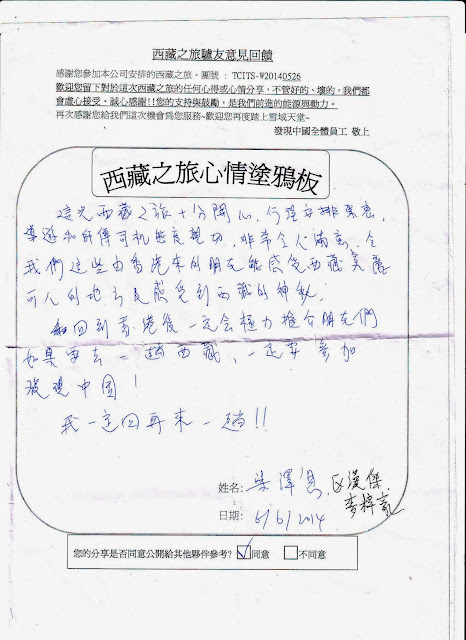 西藏之旅驢友意見回饋
感謝您參加本公司安排的西藏之旅。團號 : TCITS-W20140526
歡迎您留下對於這次西藏之旅的任何心得或心情分享，不管好的、壞的，我們都
會虛心接受、誠心感謝!!您的支持與鼓勵，是我們前進的能源與動力。
再次感謝您給我們這次機會為您服務~歡迎您再度踏上雪域天堂~
發現中國全體員工 敬上
西藏之旅心情塗鴉板
這次西藏之旅十分開心，行程安排
導遊和師傅司机態度親切，非常令人滿意，令
我們這些由香港來的朋友能感受西藏美麗
可人的地方及感受到西藏的神秘.
回到香港後一定会極力推介朋友們
如果要去一趟西藏，一定要參加
發現中國！
我一定回再來一趟!!
姓名: 梁澤 区漢傑
麥梓
日期: 6/6/2014
您的分享是否同意公開給其他夥伴參考? ☑同意 □不同意